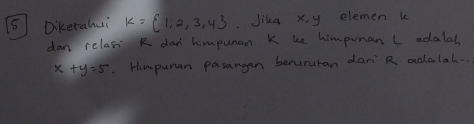 5 Diketahui K = {1,2,3,4}. Jika x,y elemen k
dan relasi R dari himpunan K ke himpunan L adalah
x + y = 5. Himpunan pasangan berurutan dari R adalah...